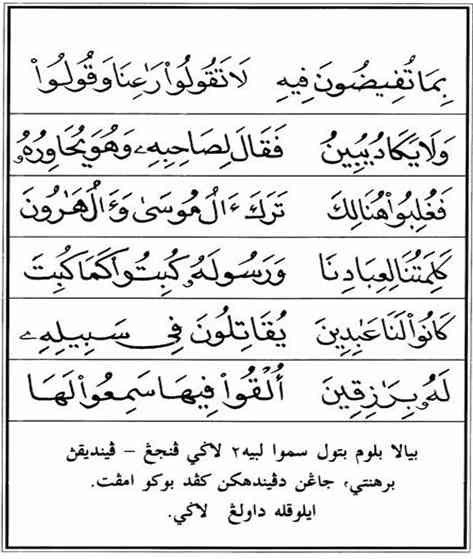 بِمَا تُفِيضُونَ فِيهِ لَا تَقُولُوا۟ رَٰعِنَا وَقُولُوا۟
وَلَا يَكَادُ يُبِينُ فَقَالَ لِصَاحِبِهِۦ وَهُوَ يُحَاوِرُهُۥ
فَغُلِبُوا۟ هُنَالِكَ تَرَكَ ءَالُ مُوسَىٰ وَءَالُ هَٰرُونَ
كَلِمَتُنَا لِعِبَادِنَا وَرَسُولَهُۥ كُبِتُوا۟ كَمَا كُبِتَ
كَانُوا۟ لَنَا عَٰبِدِينَ يُقَاتِلُونَ فِى سَبِيلِهِۦ
لَهُۥ بِرَٰزِقِينَ أُلْقُوا۟ فِيهَا سَمِعُوا۟ لَهَا
بيلا بلوم بتول سموا لبيه٢ لاڬي ڤنجڠ – ڤينديقڽ
برهنتي، جاڠن دڤيندهكن كڤد بوكو امڤت.
ايلوقله داولڠ لاڬي.